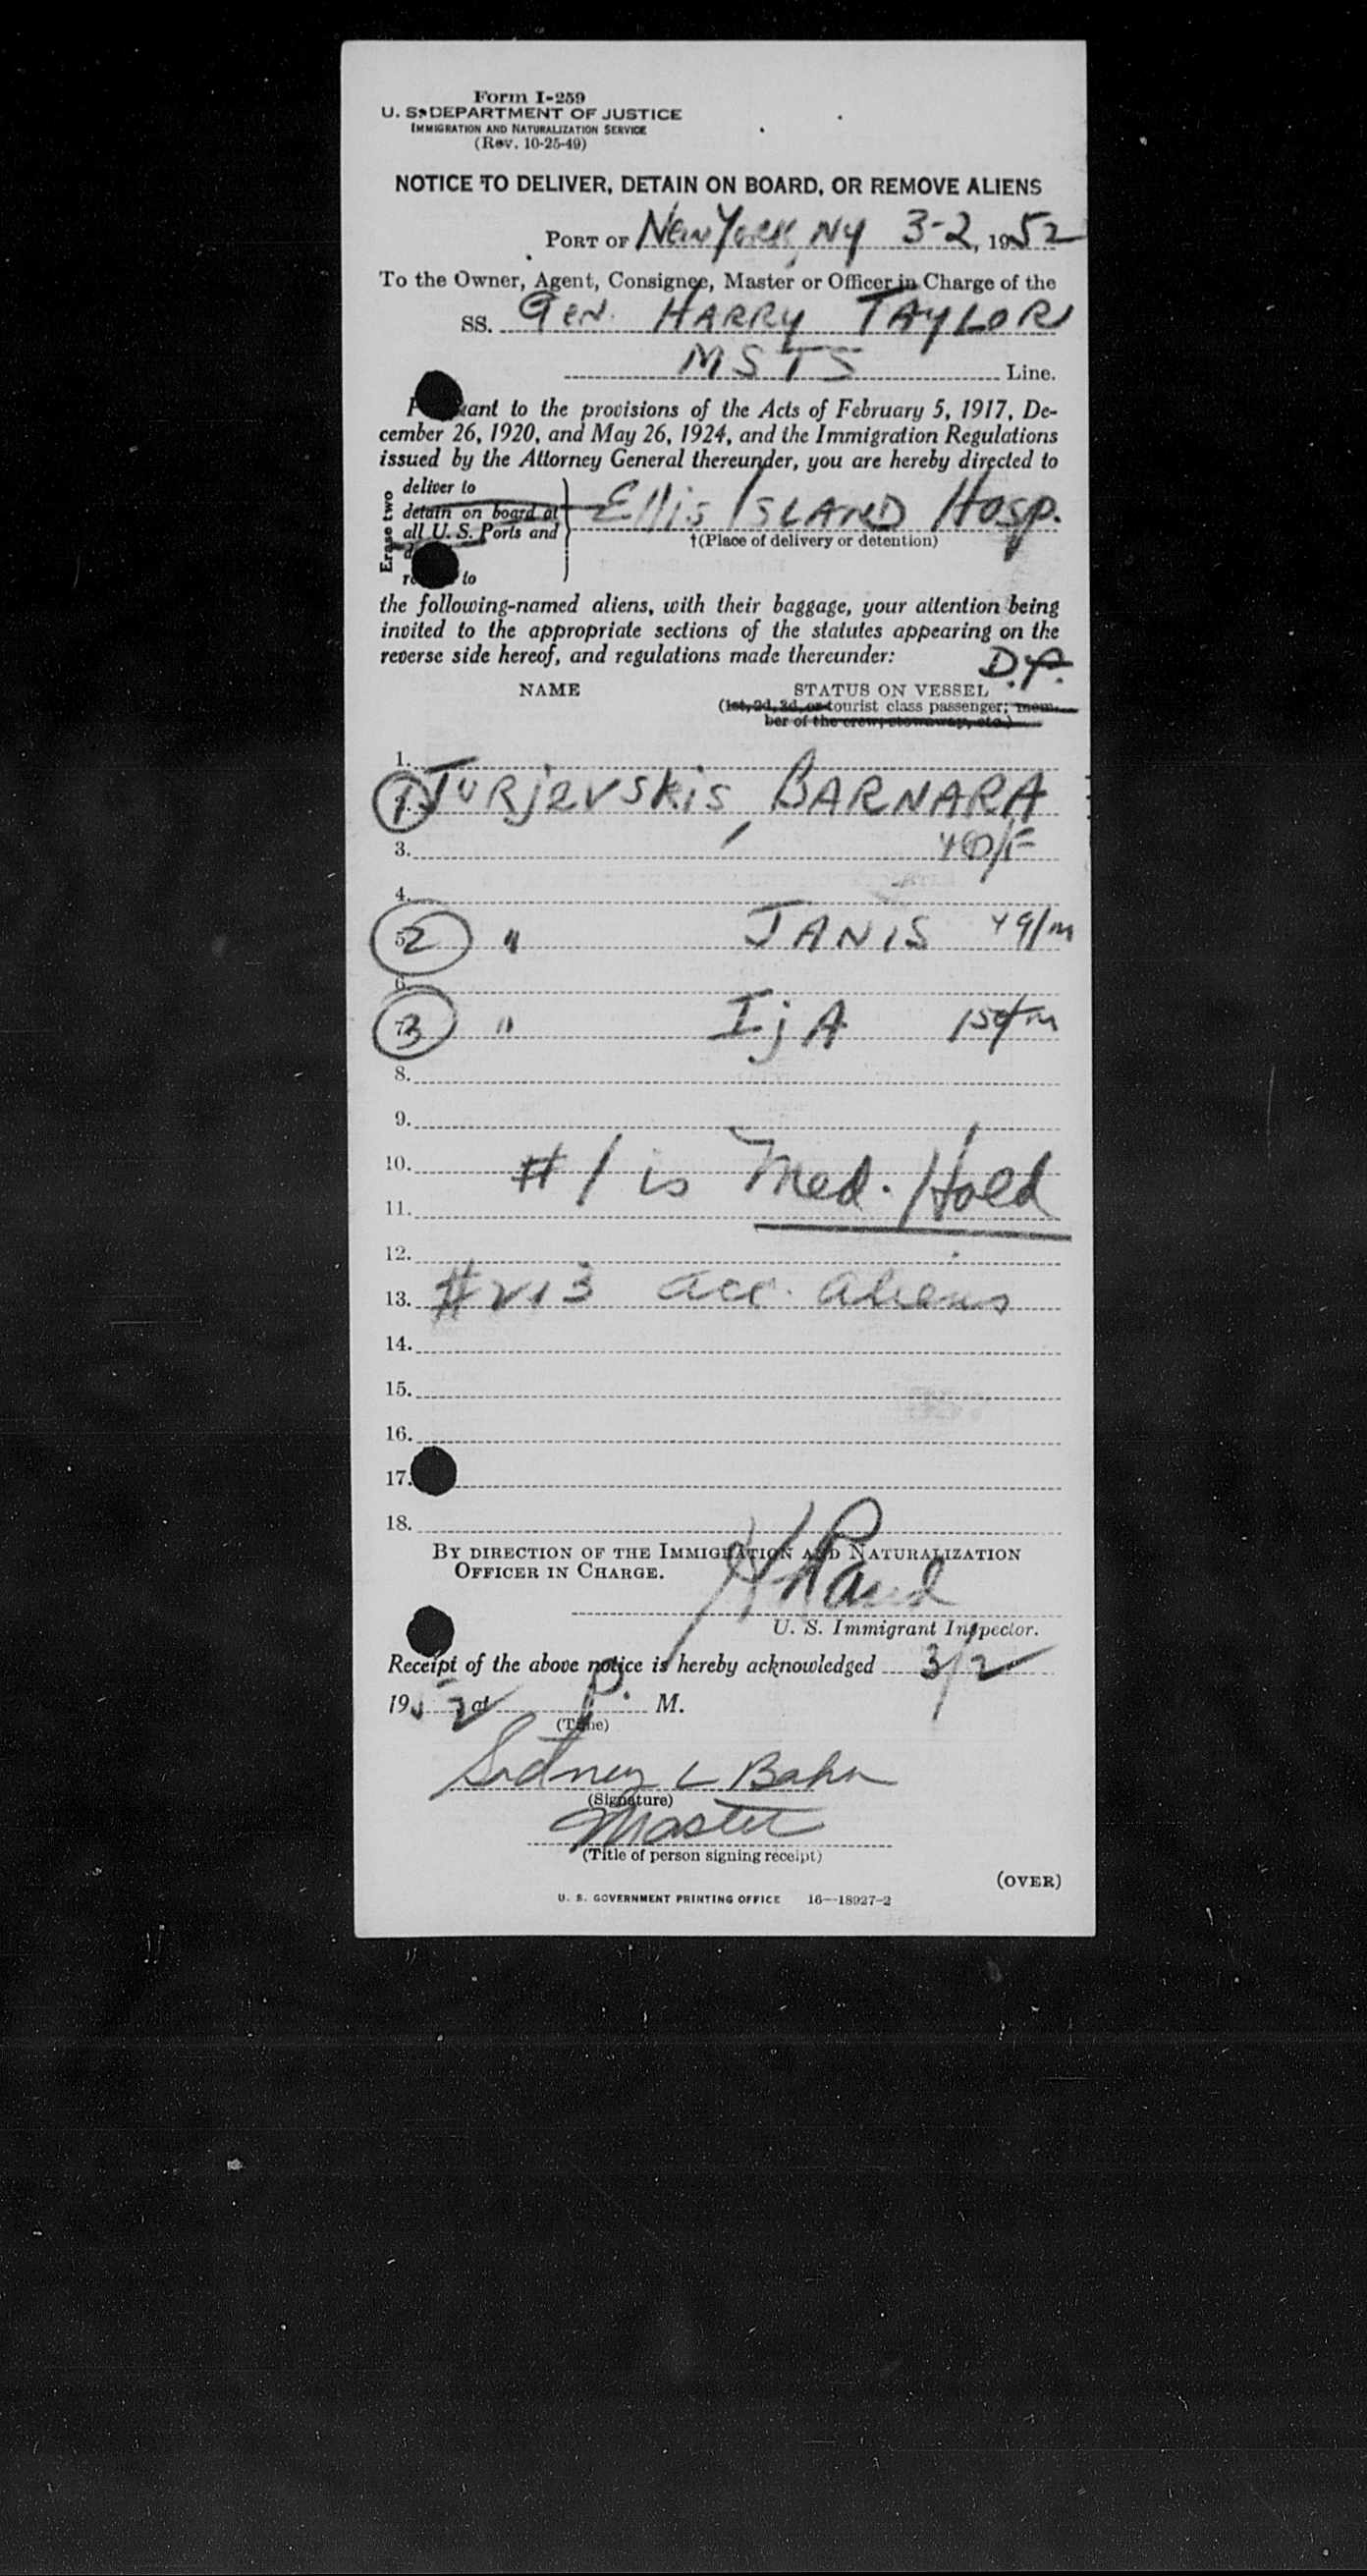 Form I-259
U. S. DEPARTMENT OF JUSTICE
IMMIGRATION AND NATURALIZATION SERVICE
(Rev. 10-25-49)
NOTICE TO DELIVER, DETAIN ON BOARD, OR REMOVE ALIENS
PORT OF New York, NY 3-2, 1952
To the Owner, Agent, Consignee, Master or Officer in Charge of the
SS. Gen. HARRY TAYLOR
MSTS Line.
to the provisions of the Acts of February 5, 1917, De-
cember 26, 1920, and May 26, 1924, and the Immigration Regulations
issued by the Attorney General thereunder, you are hereby directed to
Erase two
deliver to
detain on board at
all U. S. Ports and
to
Ellis ISLAND Hosp.
†(Place of delivery or detention)
the following-named aliens, with their baggage, your attention being
invited to the appropriate sections of the statutes appearing on the
reverse side hereof, and regulations made thereunder:
D.P.
NAME STATUS ON VESSEL
(1st, 2d, 3d, or tourist class passenger; mem-
ber of the crew; stowaway, etc.)
1.
1 Jurjevskis, BARNARA
3. /F
4.
5. 2 " JANIS 49/m
6.
7. 3 " IjA
8.
9.
10. #1 is Med. Hold
11.
12.
13. #2+3 acc. aliens
14.
15.
16.
17.
18.
BY DIRECTION OF THE IMMIGRATION AND NATURALIZATION
OFFICER IN CHARGE.
U. S. Immigrant Inspector.
Receipt of the above notice is hereby acknowledged 3/2
1952 at P. M.
(Time)
Sidney L Bahn
(Signature)
Master
(Title of person signing receipt)
(OVER)
U. S. GOVERNMENT PRINTING OFFICE 16—18927-2